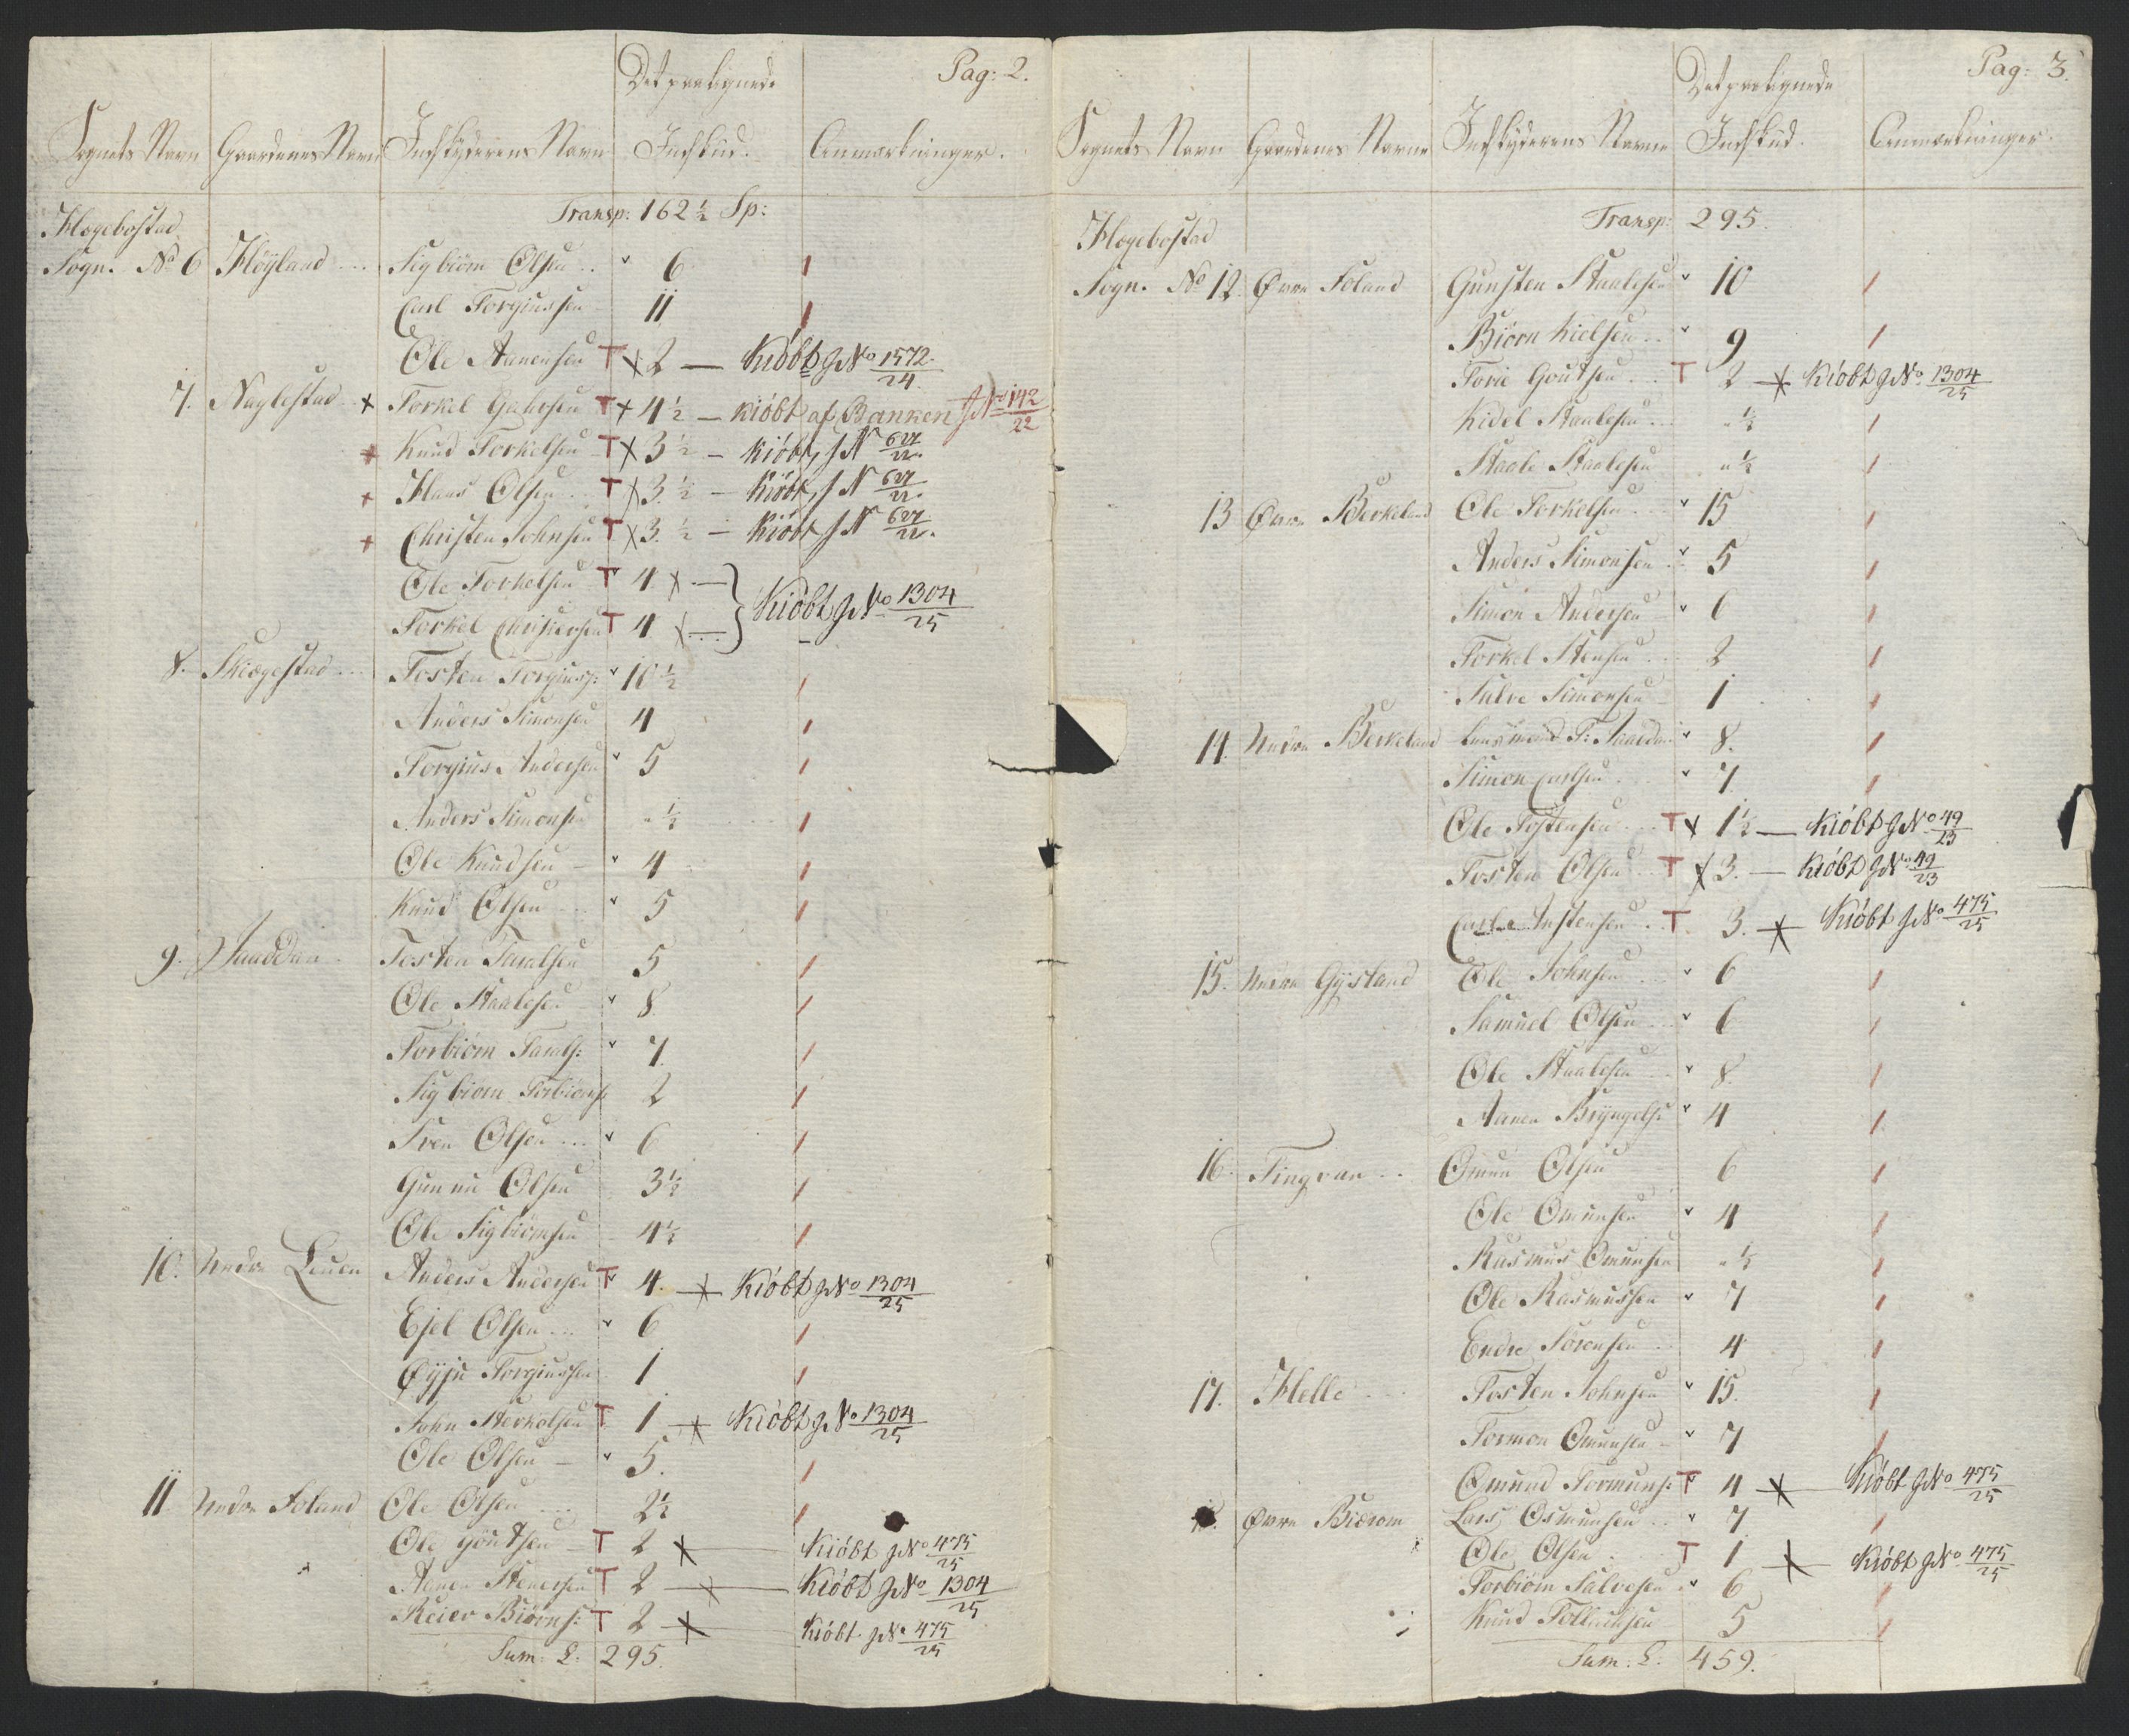 Pag: 2.
Sognets Navn Gaardenes Navn Indskyderens Navn Det paalignede Indskud. Anmærkninger.
Transp: 162 ½ Sp:
Hægebostad
Sogn. No 6 Høyland Sigbiørn Olsen 6
Carl Torgiussen 11
Ole Aanensen T x 2 — Kiøbt J No 1572/24
7. Naglestad x Torkel T x 4 ½ — kiøbt af Banken J No 142/22
Knud Torkelsen T x 3 ½ — kiøbt J N 627/22.
Hans Olsen T x 3. ½ — Kiøbt J N 627/22.
Christen Johnsen T x 3. ½ — Kiøbt J N 627/22.
Ole Torkelsen T 4 x
Torkel Christensen T 4 x } Kiøbt J No 1304/25
8. Skeægestad Tosten Torgiuss: 10 ½
Anders Simonsen 4
Torgius Andersen 5
Anders Simonsen " ½
Ole Knudsen 4
Knud Olsen 5
9. Tosten Taralsen 5
Ole Staalesen 8
Torbiørn Tarals: 7.
Sigbiørn Torbiørns: 2
Sven Olsen 6
Gunnu Olsen 3 ½
Ole Sigbiørnsen 4 ½
10. Nedre Leuen Anders Andersen T 4. x Kiøbt J No 1304/25
Ejel Olsen 6
Torgiussen 1
John Sterkolsen T 1 x Kiøbt J No 1304/25
Ole Olsen 5.
11. Nedre Foland Ole Olsen 2 ½
Ole Goutsen T 2 x Kiøbt J No 475/25
Aanen Stenersen T 2 x Kiøbt J No 1304/25
Reier Biørns: T 2 x Kiøbt J No 475/25
Sum: L: 295.
Pag: 3.
Sognets Navn Gaardenes Navne Indskyderens Navne Det paalignede Indskud. Anmærkninger.
Transp: 295.
Hægebostad
Sogn. No 12. Øvre Foland Gunsten Staalesen 10
Biørn Kielsen 9
Torie Goutsen T 2 x Kiøbt J No 1304/25
Kidel Staalesen " ½
Staale Staalesen " ½
13 Øvre Berkeland Ole Torkelsen 15
Anders Simonsen 5
Simon Andersen 6
Torkel Stensen 2
Salve Simonsen 1
14. Nedre Berkeland Lensmand T: 8.
Simon Carlsen 7
Ole Tostensen T x 1 ½ — Kiøbt J No 49/23
Tosten Olsen T x 3. — Kiøbt J No 49/23
Tostensen T 3. x Kiøbt J No 475/25
15. Nedre Gysland Ole Johnsen 6
Samuel Olsen 6
Ole Staalesen 8.
Aanen Bryngels: 4
16. Tingvan Omun Olsen 6
Ole Omunsen 4
Rasmus Omunsen " ½
Ole Rasmussen 7
Endre Sørensen 4
17. Helle Tosten Johnsen 15.
Tormon Omunsen 7
Omund Tormuns: T 4 x Kiøbt J No 475/25
Øvre Biærom Lars Osmunsen 7
Ole Olsen T 1 x Kiøbt J No 475/25
Torbiørn Salvesen 6
Knud Tollaksen 5
Sum. L: 459.